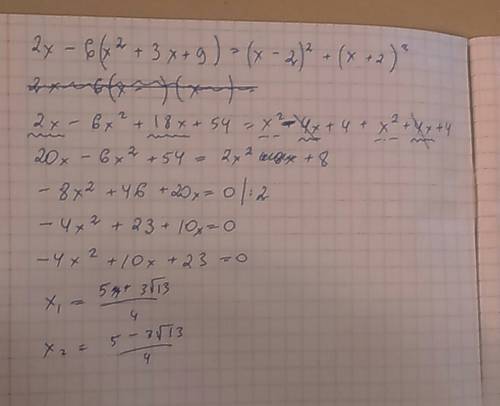 2x - 6(x² + 3x + 9) = (x - 2)² + (x + 2)²
2x - 6x² + 18x + 54 = x² - 4x + 4 + x² + 4x + 4
20x - 6x² + 54 = 2x² + 8
- 8x² + 46 + 20x = 0 |:2
- 4x² + 23 + 10x = 0
- 4x² + 10x + 23 = 0
x₁ = (5 + 3√13)/4
x₂ = (5 - 3√13)/4